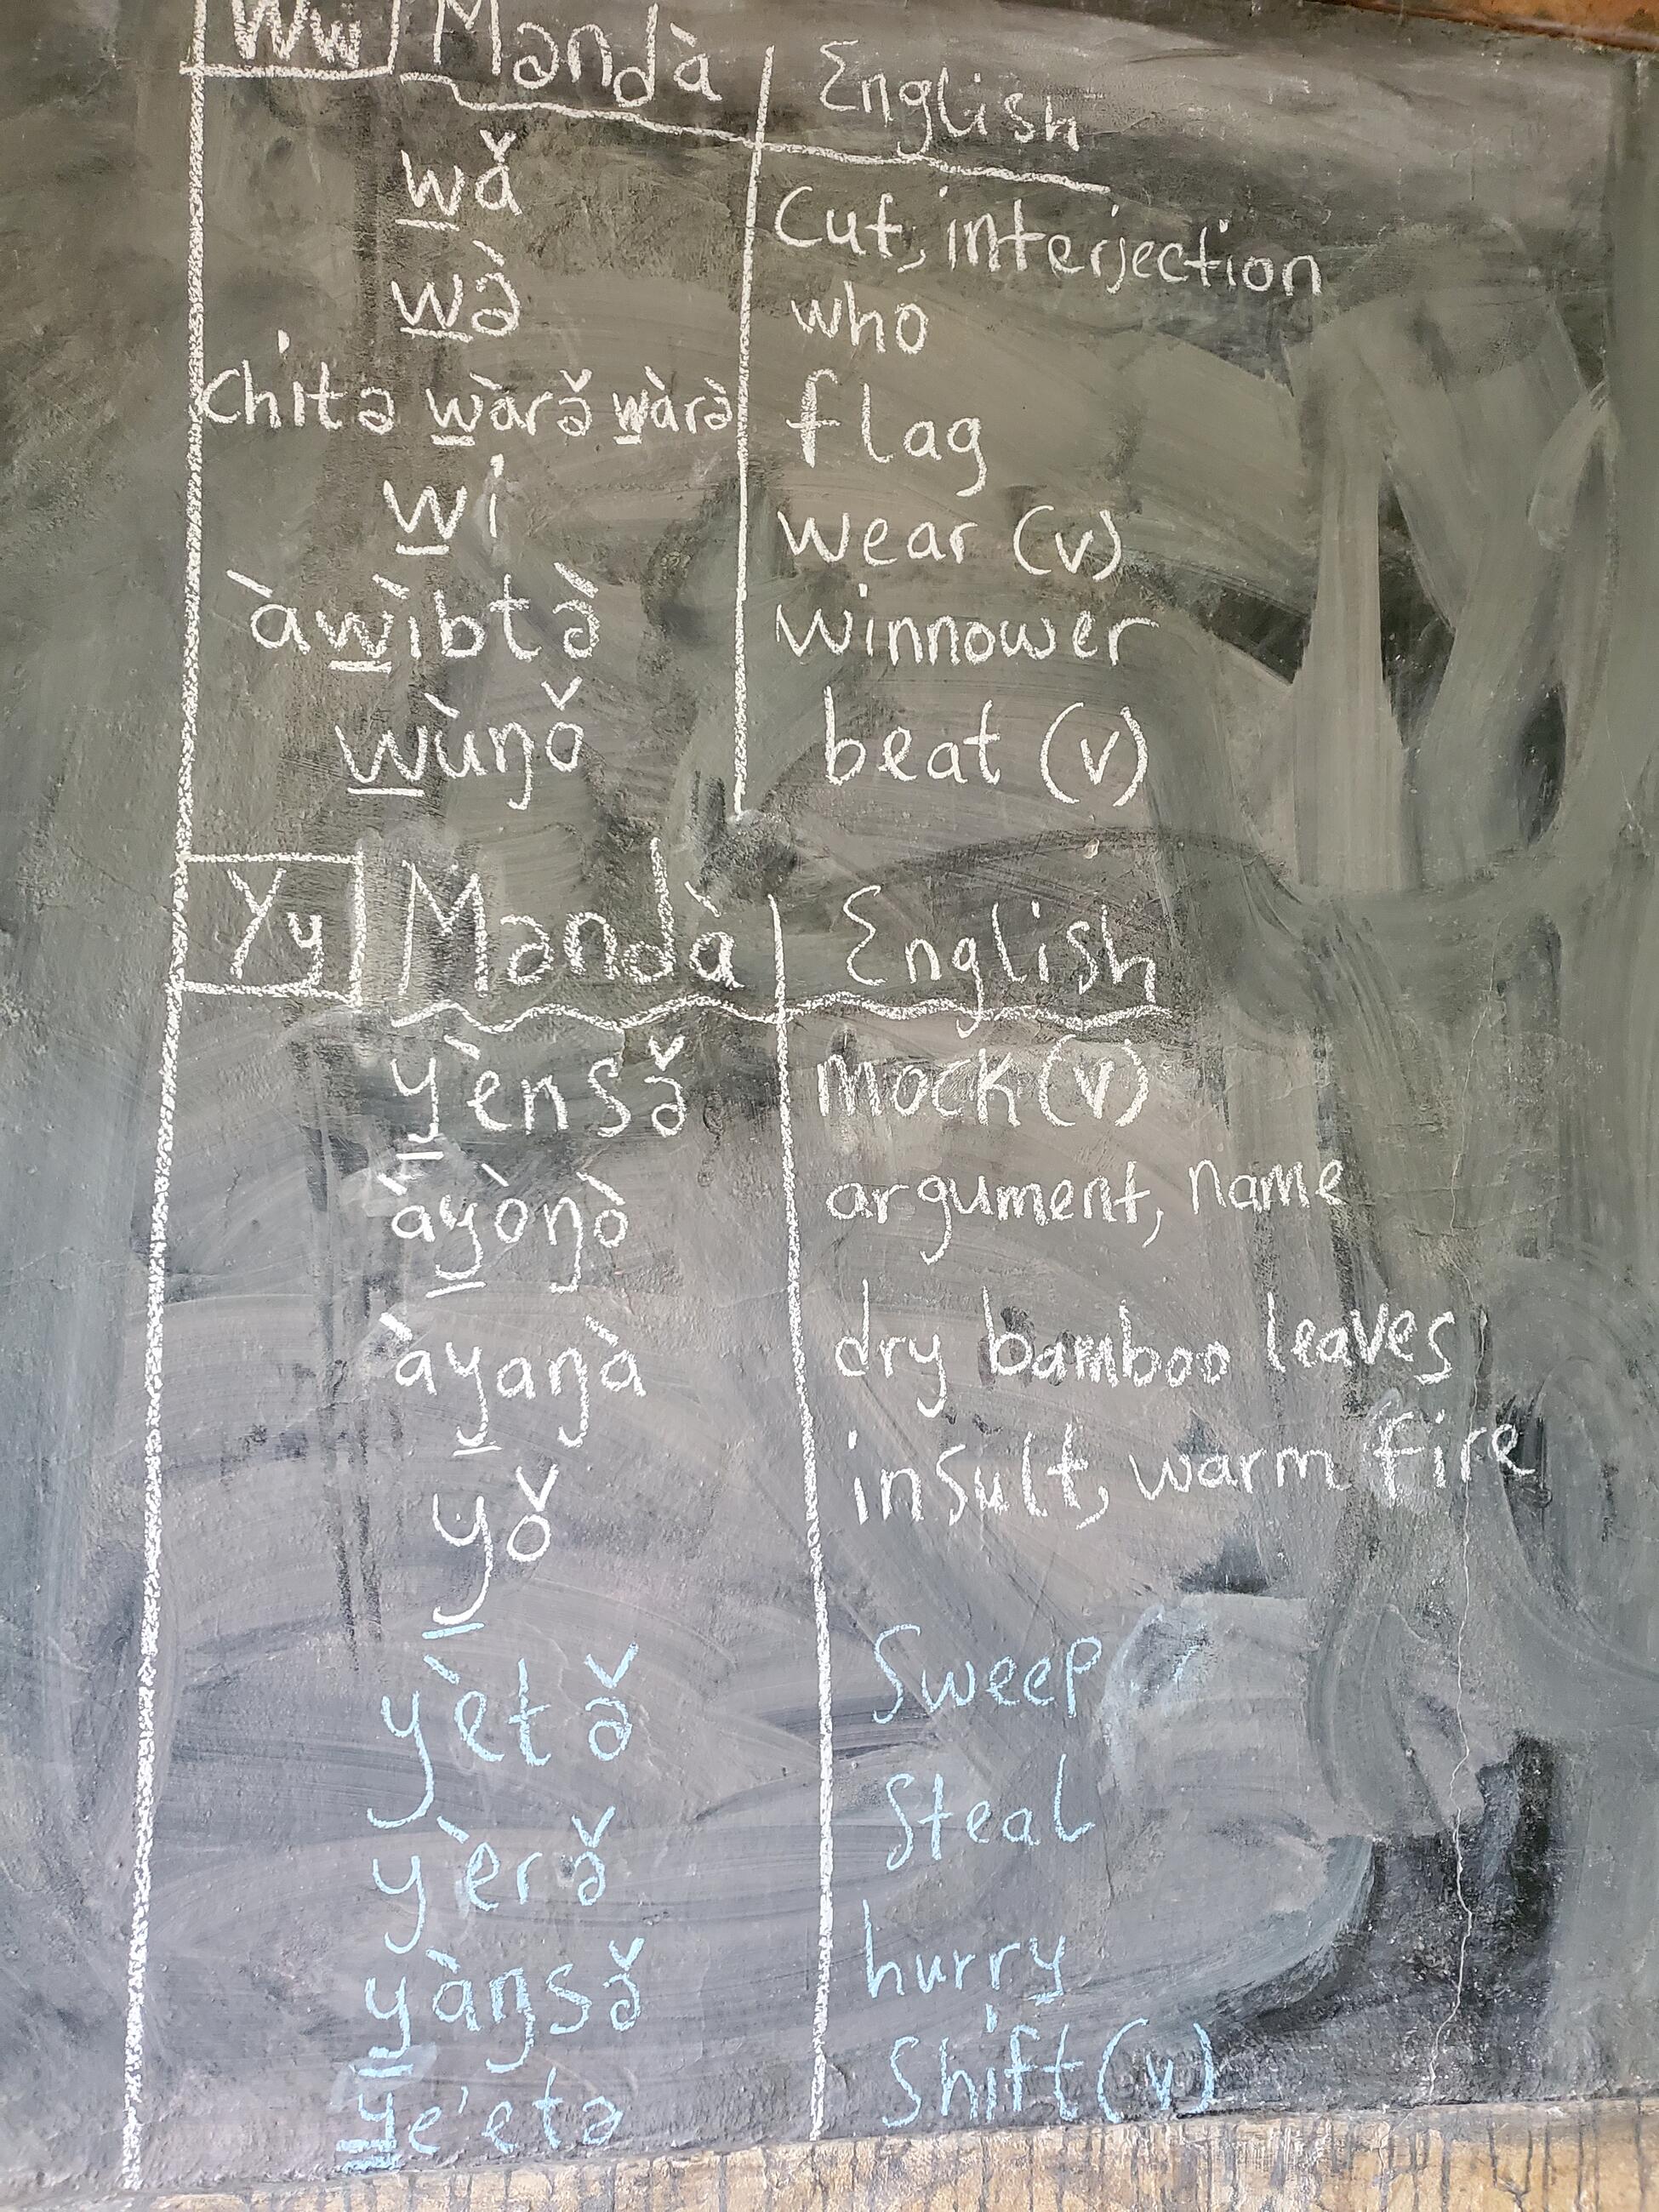 Ww Məndà English
wǎ cut, interjection
wə̀ who
chitə wàrə̌ wàrə̀ flag
wi wear (v)
àwìbtə̀ winnower
wùŋǒ beat (v)
Yy Məndà English
yènsə̌ mock (v)
àyòŋò argument, name
àyaŋà dry bamboo leaves
yǒ insult, warm fire
yètə̌ Sweep
yèrə̌ Steal
yàŋsə̌ hurry
ye'etə Shift (v)